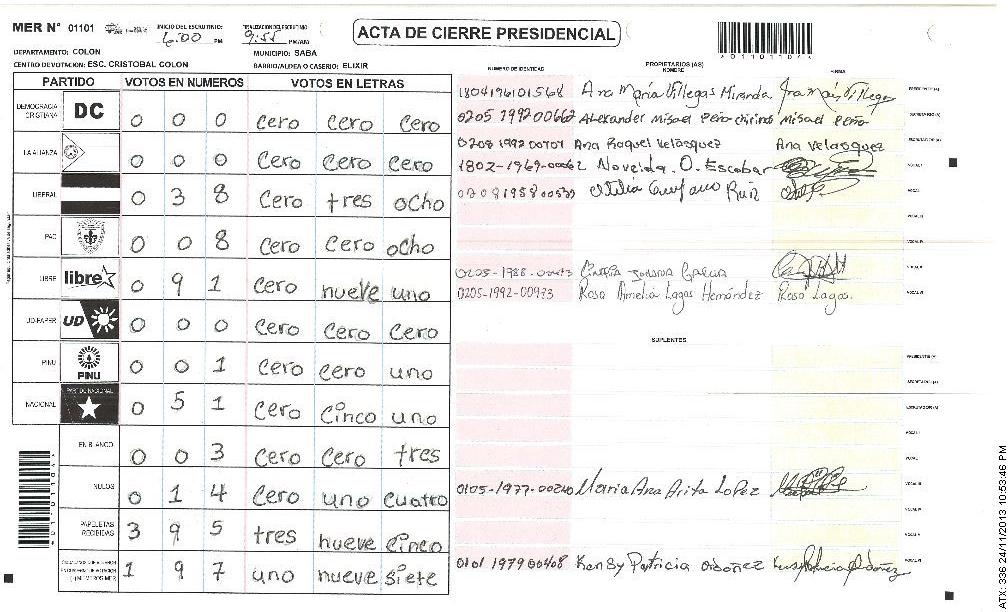 MER Nº 01101 INICIO DEL ESCRUTINIO: 6:00 PM FINALIZACION DEL ESCRUTINIO 9:55 PM/AM
ACTA DE CIERRE PRESIDENCIAL
01101104
DEPARTAMENTO: COLON MUNICIPIO: SABA
CENTRO DE VOTACION: ESC. CRISTOBAL COLON BARRIO/ALDEA O CASERIO: ELIXIR
PARTIDO VOTOS EN NUMEROS VOTOS EN LETRAS
DEMOCRACIA CRISTIANA DC 0 0 0 Cero Cero Cero
LA ALIANZA 0 0 0 Cero Cero Cero
LIBERAL 0 3 8 Cero tres ocho
PAC 0 0 8 Cero Cero ocho
LIBRE libre 0 9 1 Cero nueve uno
UD-FAPER UD 0 0 0 Cero Cero Cero
PINU PINU 0 0 1 Cero Cero uno
NACIONAL PARTIDO NACIONAL 0 5 1 Cero Cinco uno
EN BLANCO 0 0 3 Cero Cero tres
NULOS 0 1 4 Cero uno cuatro
PAPELETAS RECIBIDAS 3 9 5 tres nueve Cinco
(+) MIEMBROS MER 1 9 7 uno nueve siete
NUMERO DE IDENTIDAD PROPIETARIOS (AS) NOMBRE FIRMA
1804196101568 Ana María Villegas Miranda Ana María Villegas PRESIDENTE(A)
0205 1992 00662 Alexander Misael Peña Chirinos Misael Peña SECRETARIO(A)
0208 1992 00701 Ana Raquel Velásquez Ana Velasquez
1802-1969-00062 Noveida. O. Escobar VOCAL I
Ruiz
0205-1992-00973 Rosa Amelia Lagos Hernández Rosa Lagos.
SUPLENTES
PRESIDENTE(A)
SECRETARIO(A)
ESCRUTADOR(A)
0105-1977-00240 Maria Ana Arita Lopez
0101 1979 00408 Kensy Patricia Ordoñez
01101104
ATX: 336 24/11/2013 10:53:46 PM